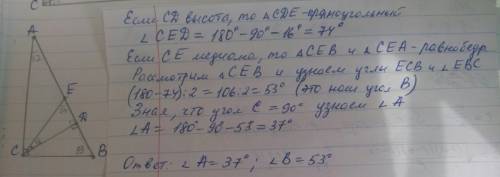 Если CD высота, то △CDE - прямоугольный
∠CED = 180° - 90° - 16° = 74°
Если CE медиана, то △CEB и △CEA - равнобедр.
Рассмотрим △CEB и узнаем углы ECB и ∠EBC
(180-74):2 = 106:2 = 53° (это наш угол B)
Зная, что угол C = 90° узнаем ∠A
∠A = 180° - 90 - 53 = 37°
Ответ: ∠A = 37°; ∠B = 53°
A
E
C
B